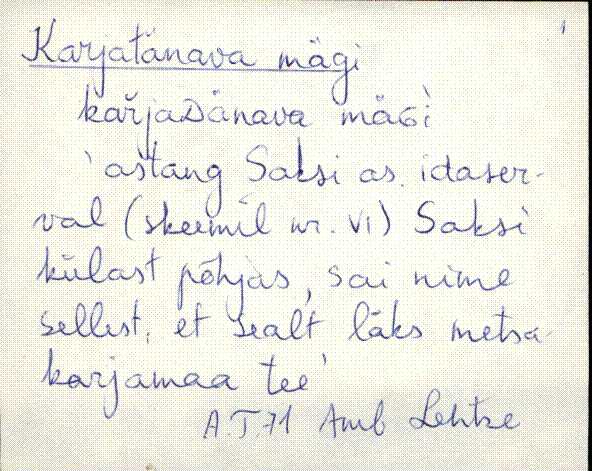 1
Karjatänava mägi
kaŕjaDänava mäGi
'astang Saksi as. idaser-
val (skeemil nr. VI) Saksi
külast põhjas, sai nime
sellest, et sealt läks metsa
karjamaa tee'
A.T.71 Amb Lehtse